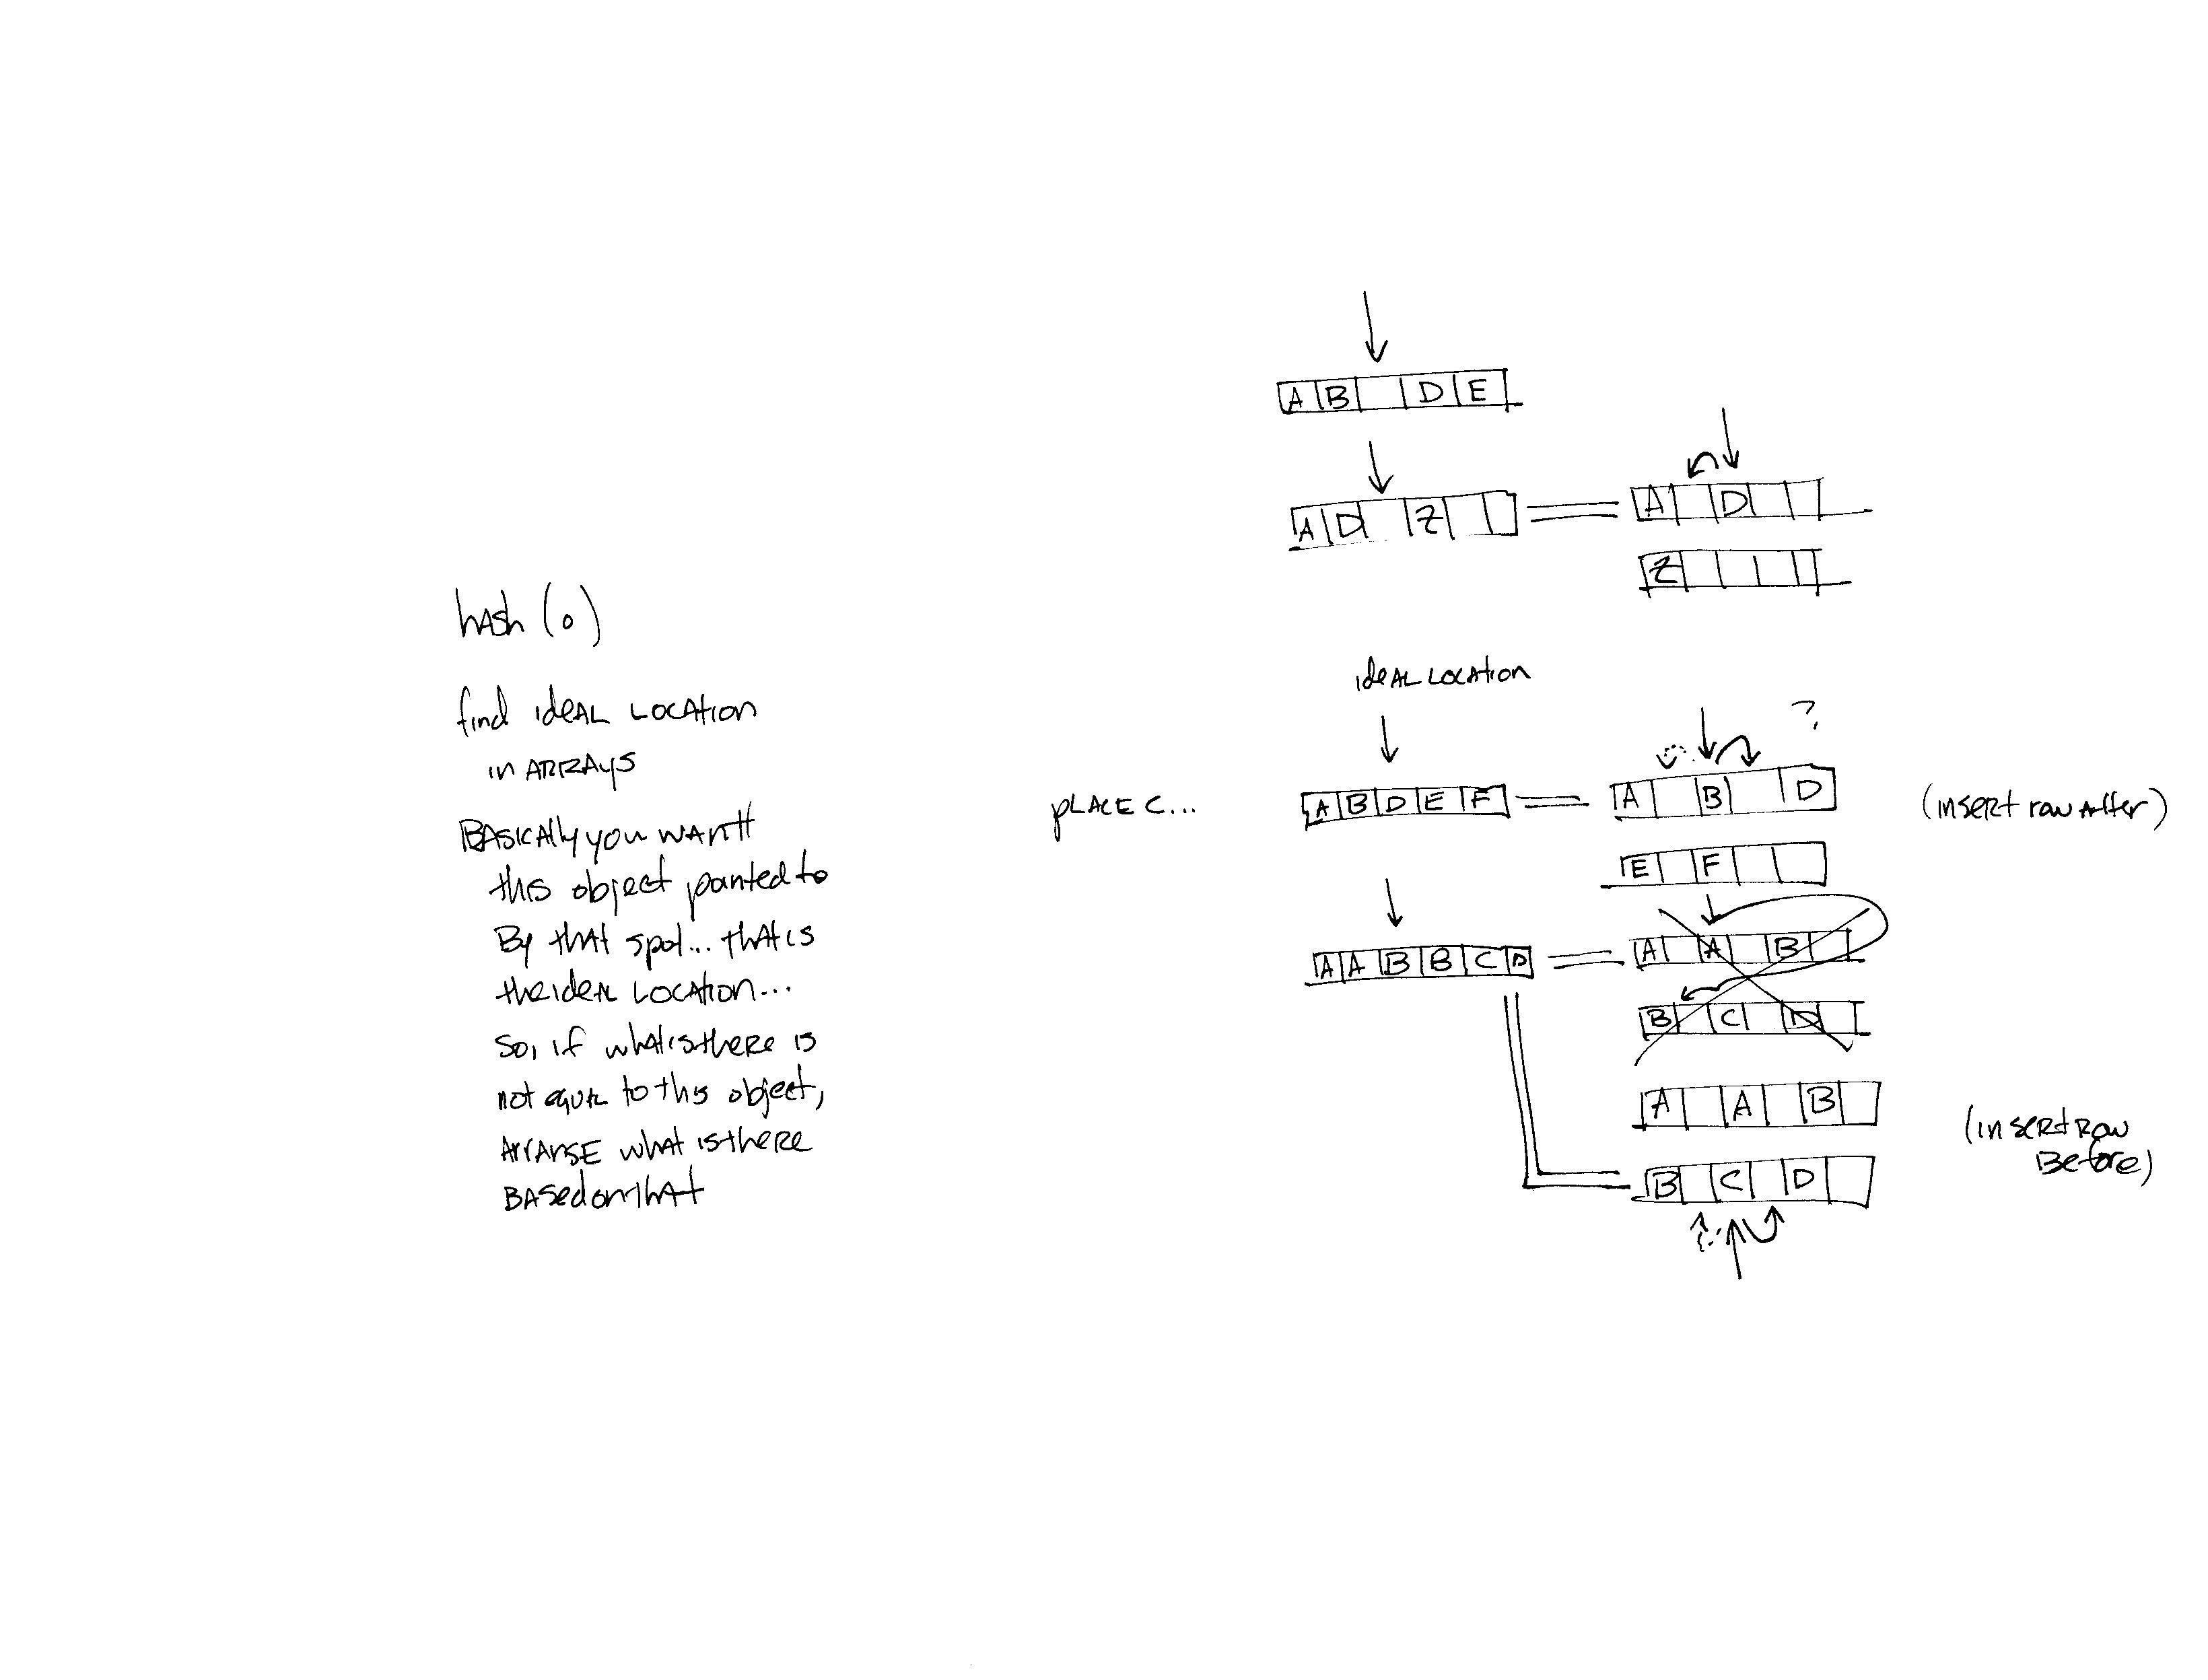 hash (o)
find ideal location
in arrays
Basically you want
this object pointed to
By that spot... that is
the ideal location...
So, if what is there is
not equal to this object,
Arrange what is there
Based on that
A B D E
A D Z
A D
Z
ideal location
?
place C...
A B D E F
A B D
(insert row after)
E F
A A B B C D
A A B
B C D
A A B
(insert row
Before)
B C D